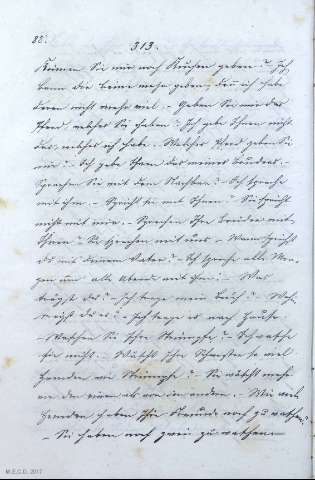 82.
313.
Können Sie mir noch Kuchen geben? - Ich
kann Ihnen keine mehr geben, denn ich habe
deren nicht mehr viel. - Geben Sie mir das
Pferd, welches Sie haben? Ich gebe Ihnen nicht
das, welches ich habe. - Welches Pferd geben Sie
mir? - Ich gebe Ihnen das meines Bruders. -
Sprechen Sie mit dem Nachbar? - Ich spreche
mit ihm. - Spricht er mit Ihnen? - Er spricht
nicht mit mir. - Sprechen Ihre Brüder mit
Ihnen? - Sie sprechen mit uns. - Wann sprichst
du mit deinem Vater? - Ich spreche alle Mor-
gen und alle Abende mit ihm. - Was
trägst du? - Ich trage mein Buch. - Wo-
trägst du es? - Ich trage es nach Hause.
- Waschen Sie Ihre Strümpfe? - Ich wasche
sie nicht. - Wäscht Ihr Schwester so viel
Hemden wie Strümpfe? - Sie wäscht mehr
von den einen als von den andern. - Wie viel
Hemden haben Ihre Freunde noch zu waschen?
- Sie haben noch zwei zu waschen. -
M.E.C.D. 2017